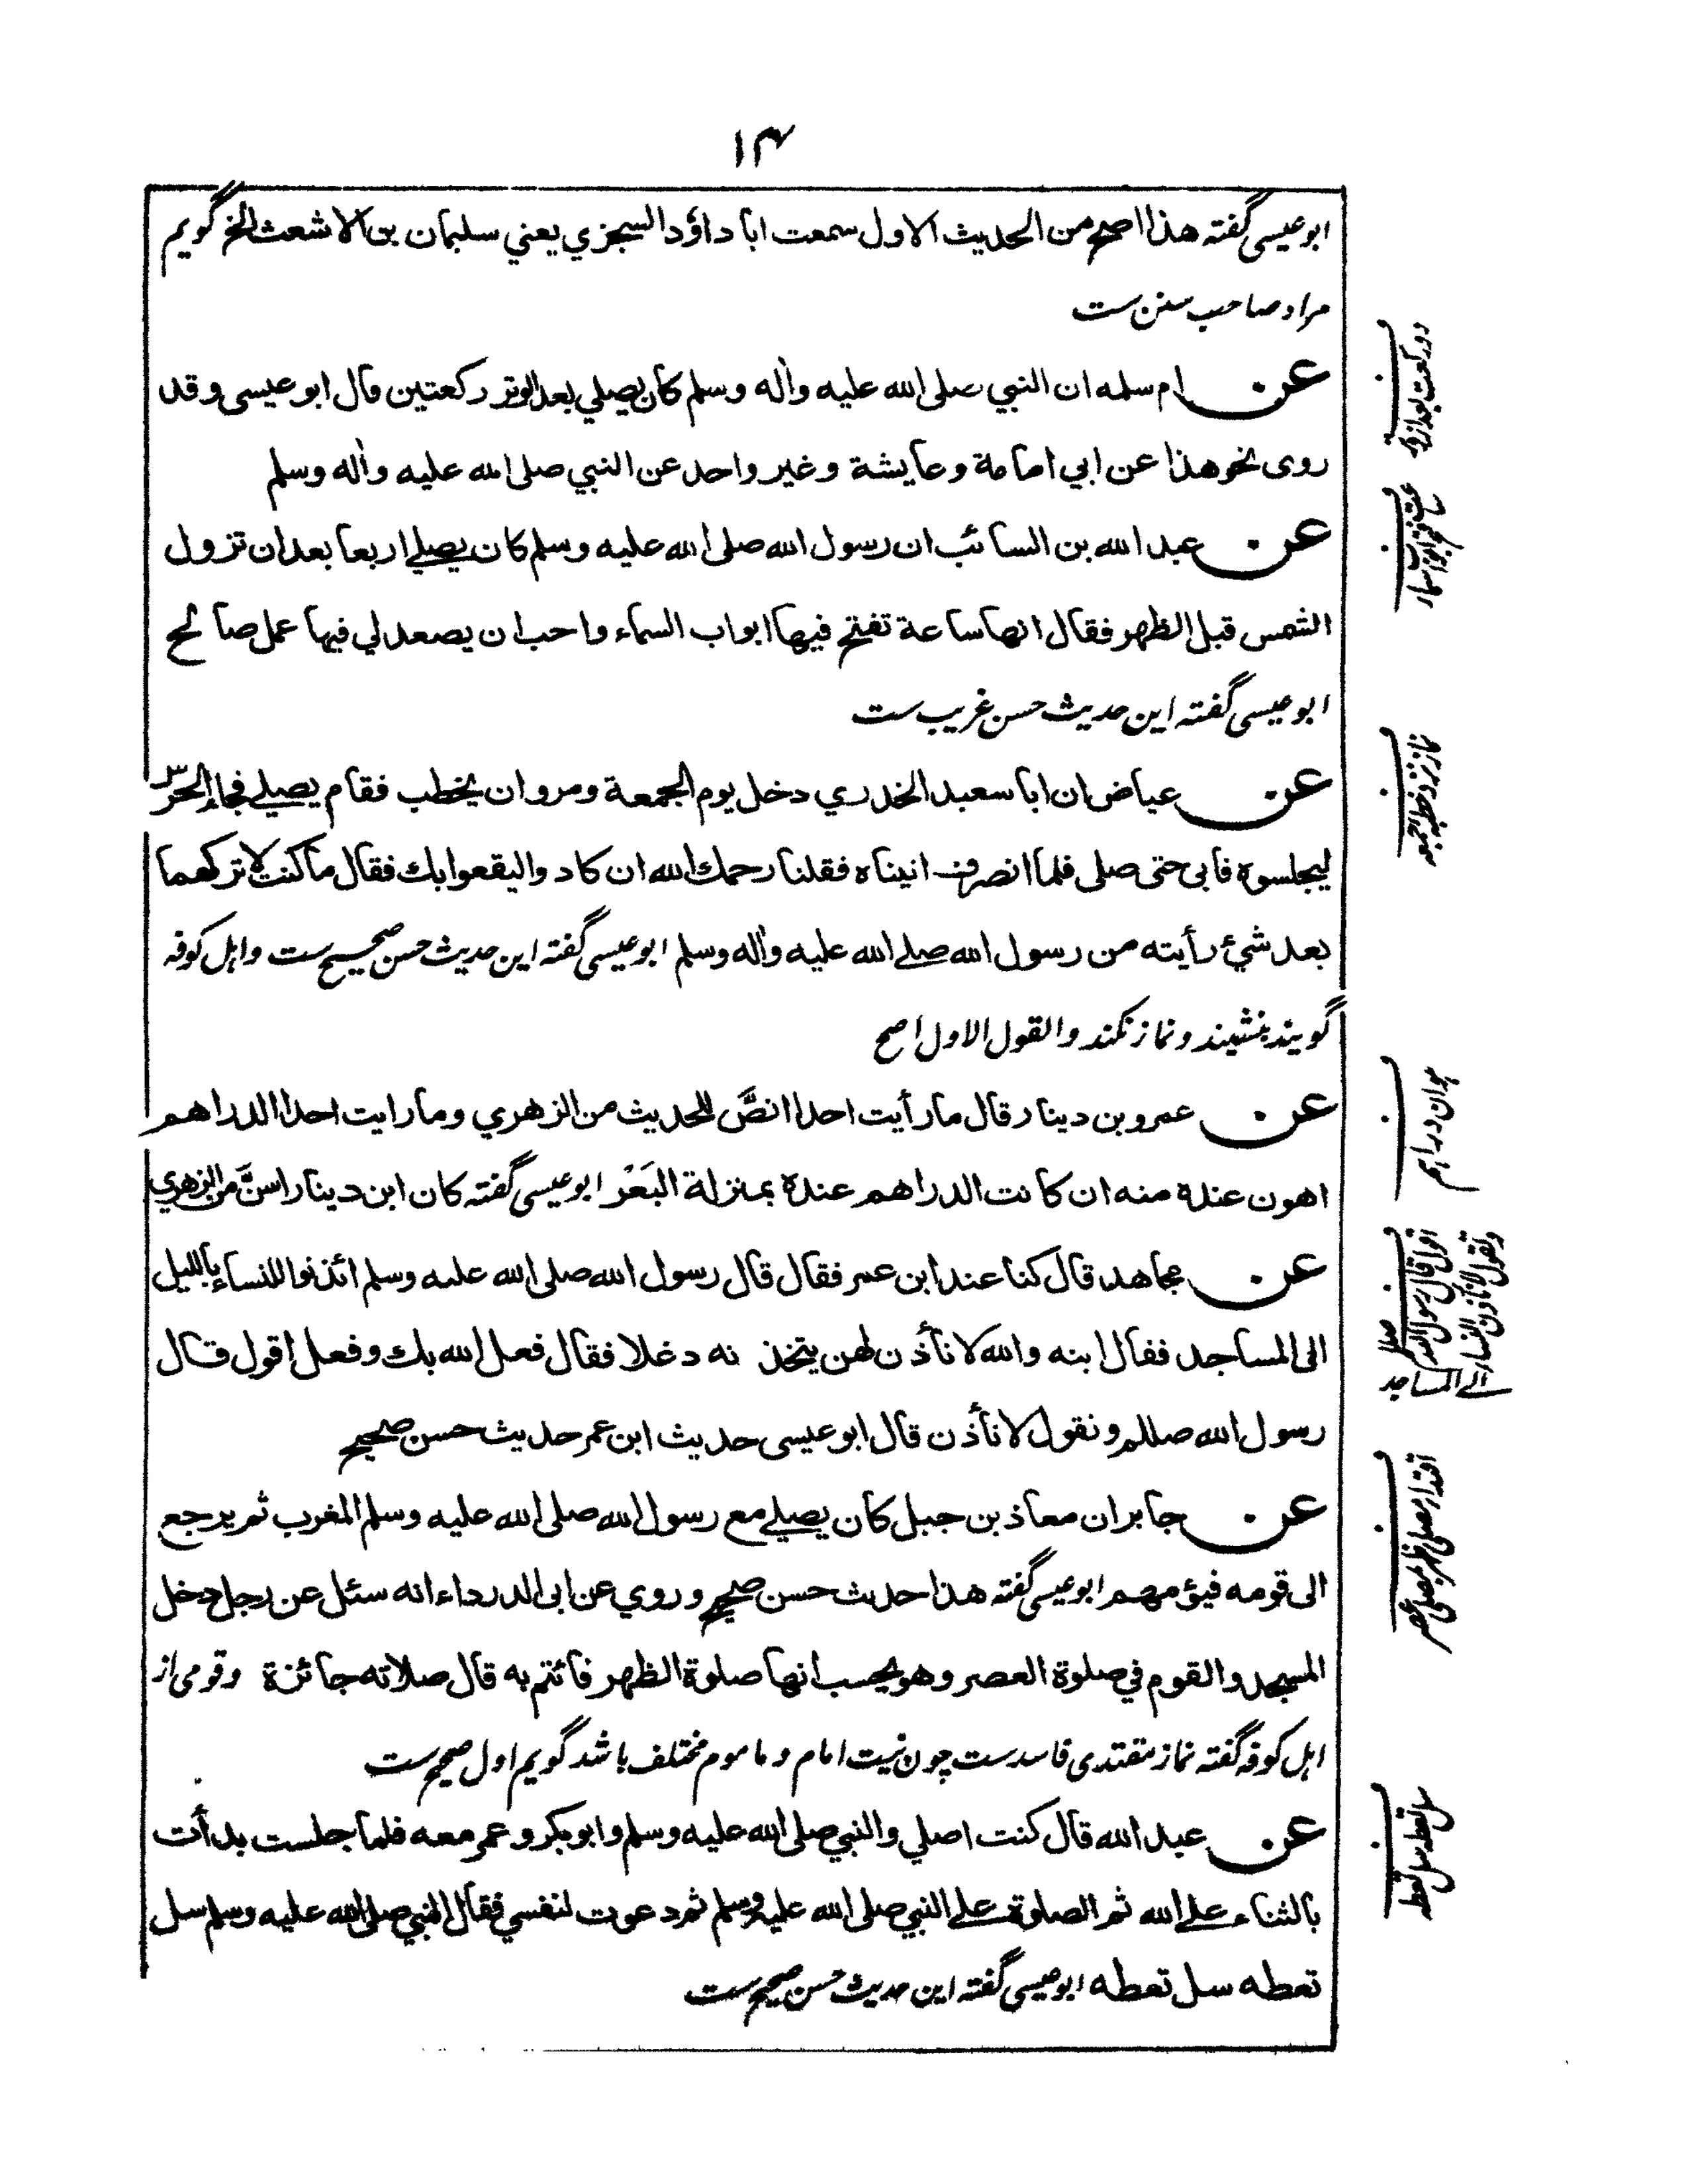 ۱۴
ابوعیسی گفته هذا اصح من الحدیث الاول سمعت ابا داؤد السجزي یعني سلیمان بن الاشعث الخ گویم
مراد صاحب سنن ست
عن ام سلمه ان النبي صلی الله علیه واٰله وسلم کان یصلي بعد الوتر رکعتین قال ابوعیسی وقد
روی نحو هذا عن ابي امامة وعایشة وغیر واحد عن النبي صلی الله علیه واٰله وسلم
عن عبد الله بن السائب ان رسول الله صلی الله علیه وسلم کان یصلے اربعا بعد ان تزول
الشمس قبل الظهر فقال انها ساعة تفتح فیها ابواب السماء واحب ان یصعد لي فیها عمل صالح
ابوعیسی گفته این حدیث حسن غریب ست
عن عیاض ان ابا سعید الخدري دخل یوم الجمعة ومروان یخطب فقام یصلے فجاء الحرس
لیجلسوه فابی حتی صلی فلما انصرف اتیناه فقلنا رحمك الله ان کادوا لیقعوا بك فقال ما کنت لاترکهما
بعد شئ رأیته من رسول الله صلے الله علیه واٰله وسلم ابوعیسی گفته این حدیث حسن صحیح ست واہل کوفه
گویند بنشیند و نماز نکند والقول الاول اصح
عن عمرو بن دینار قال ما رأیت احدا انصَّ للحدیث من الزهري وما رایت احدا الدراهم
اهون عنده منه ان کانت الدراهم عنده بمنزلة البَعْر ابوعیسی گفته کان ابن دینار اسنَّ من الزهري
عن مجاهد قال کنا عند ابن عمر فقال قال رسول الله صلی الله علیه وسلم ائذنوا للنساء باللیل
الی المساجد فقال ابنه والله لا نأذن لهن یتخذ نه دغلا فقال فعل الله بك وفعل اقول قال
رسول الله صللم ونقول لا نأذن قال ابوعیسی حدیث ابن عمر حدیث حسن صحیح
عن جابر ان معاذ بن جبل کان یصلے مع رسول الله صلی الله علیه وسلم المغرب ثم یرجع
الی قومه فیؤمهم ابوعیسی گفته هذا حدیث حسن صحیح وروي عن ابی الدرداء انه سئل عن رجل دخل
المسجد والقوم في صلوة العصر وهو یحسب انها صلوة الظهر فائتم به قال صلاته جائزة وقومی از
اہل کوفه گفته نماز مقتدی فاسد ست چون نیت امام و ماموم مختلف باشد گویم اول صحیح ست
عن عبد الله قال کنت اصلي والنبي صلی الله علیه وسلم وابوبکر وعمر معه فلما جلست بدأت
بالثناء علے الله ثم الصلوة علے النبي صلی الله علیه وسلم ثم دعوت لنفسي فقال النبي صلی الله علیه وسلم سل
تعطه سل تعطه ابوعیسی گفته این حدیث حسن صحیح ست
دو رکعت بعد از وتر
نماز نزد خطبه جمعه
ہوان دراہم
اقول قال رسول الله صللم
ونقول لا نأذن النساء
الے المساجد
اقتداء مصلی ظہر بمصلی عصر
سل تعطه سل تعطه